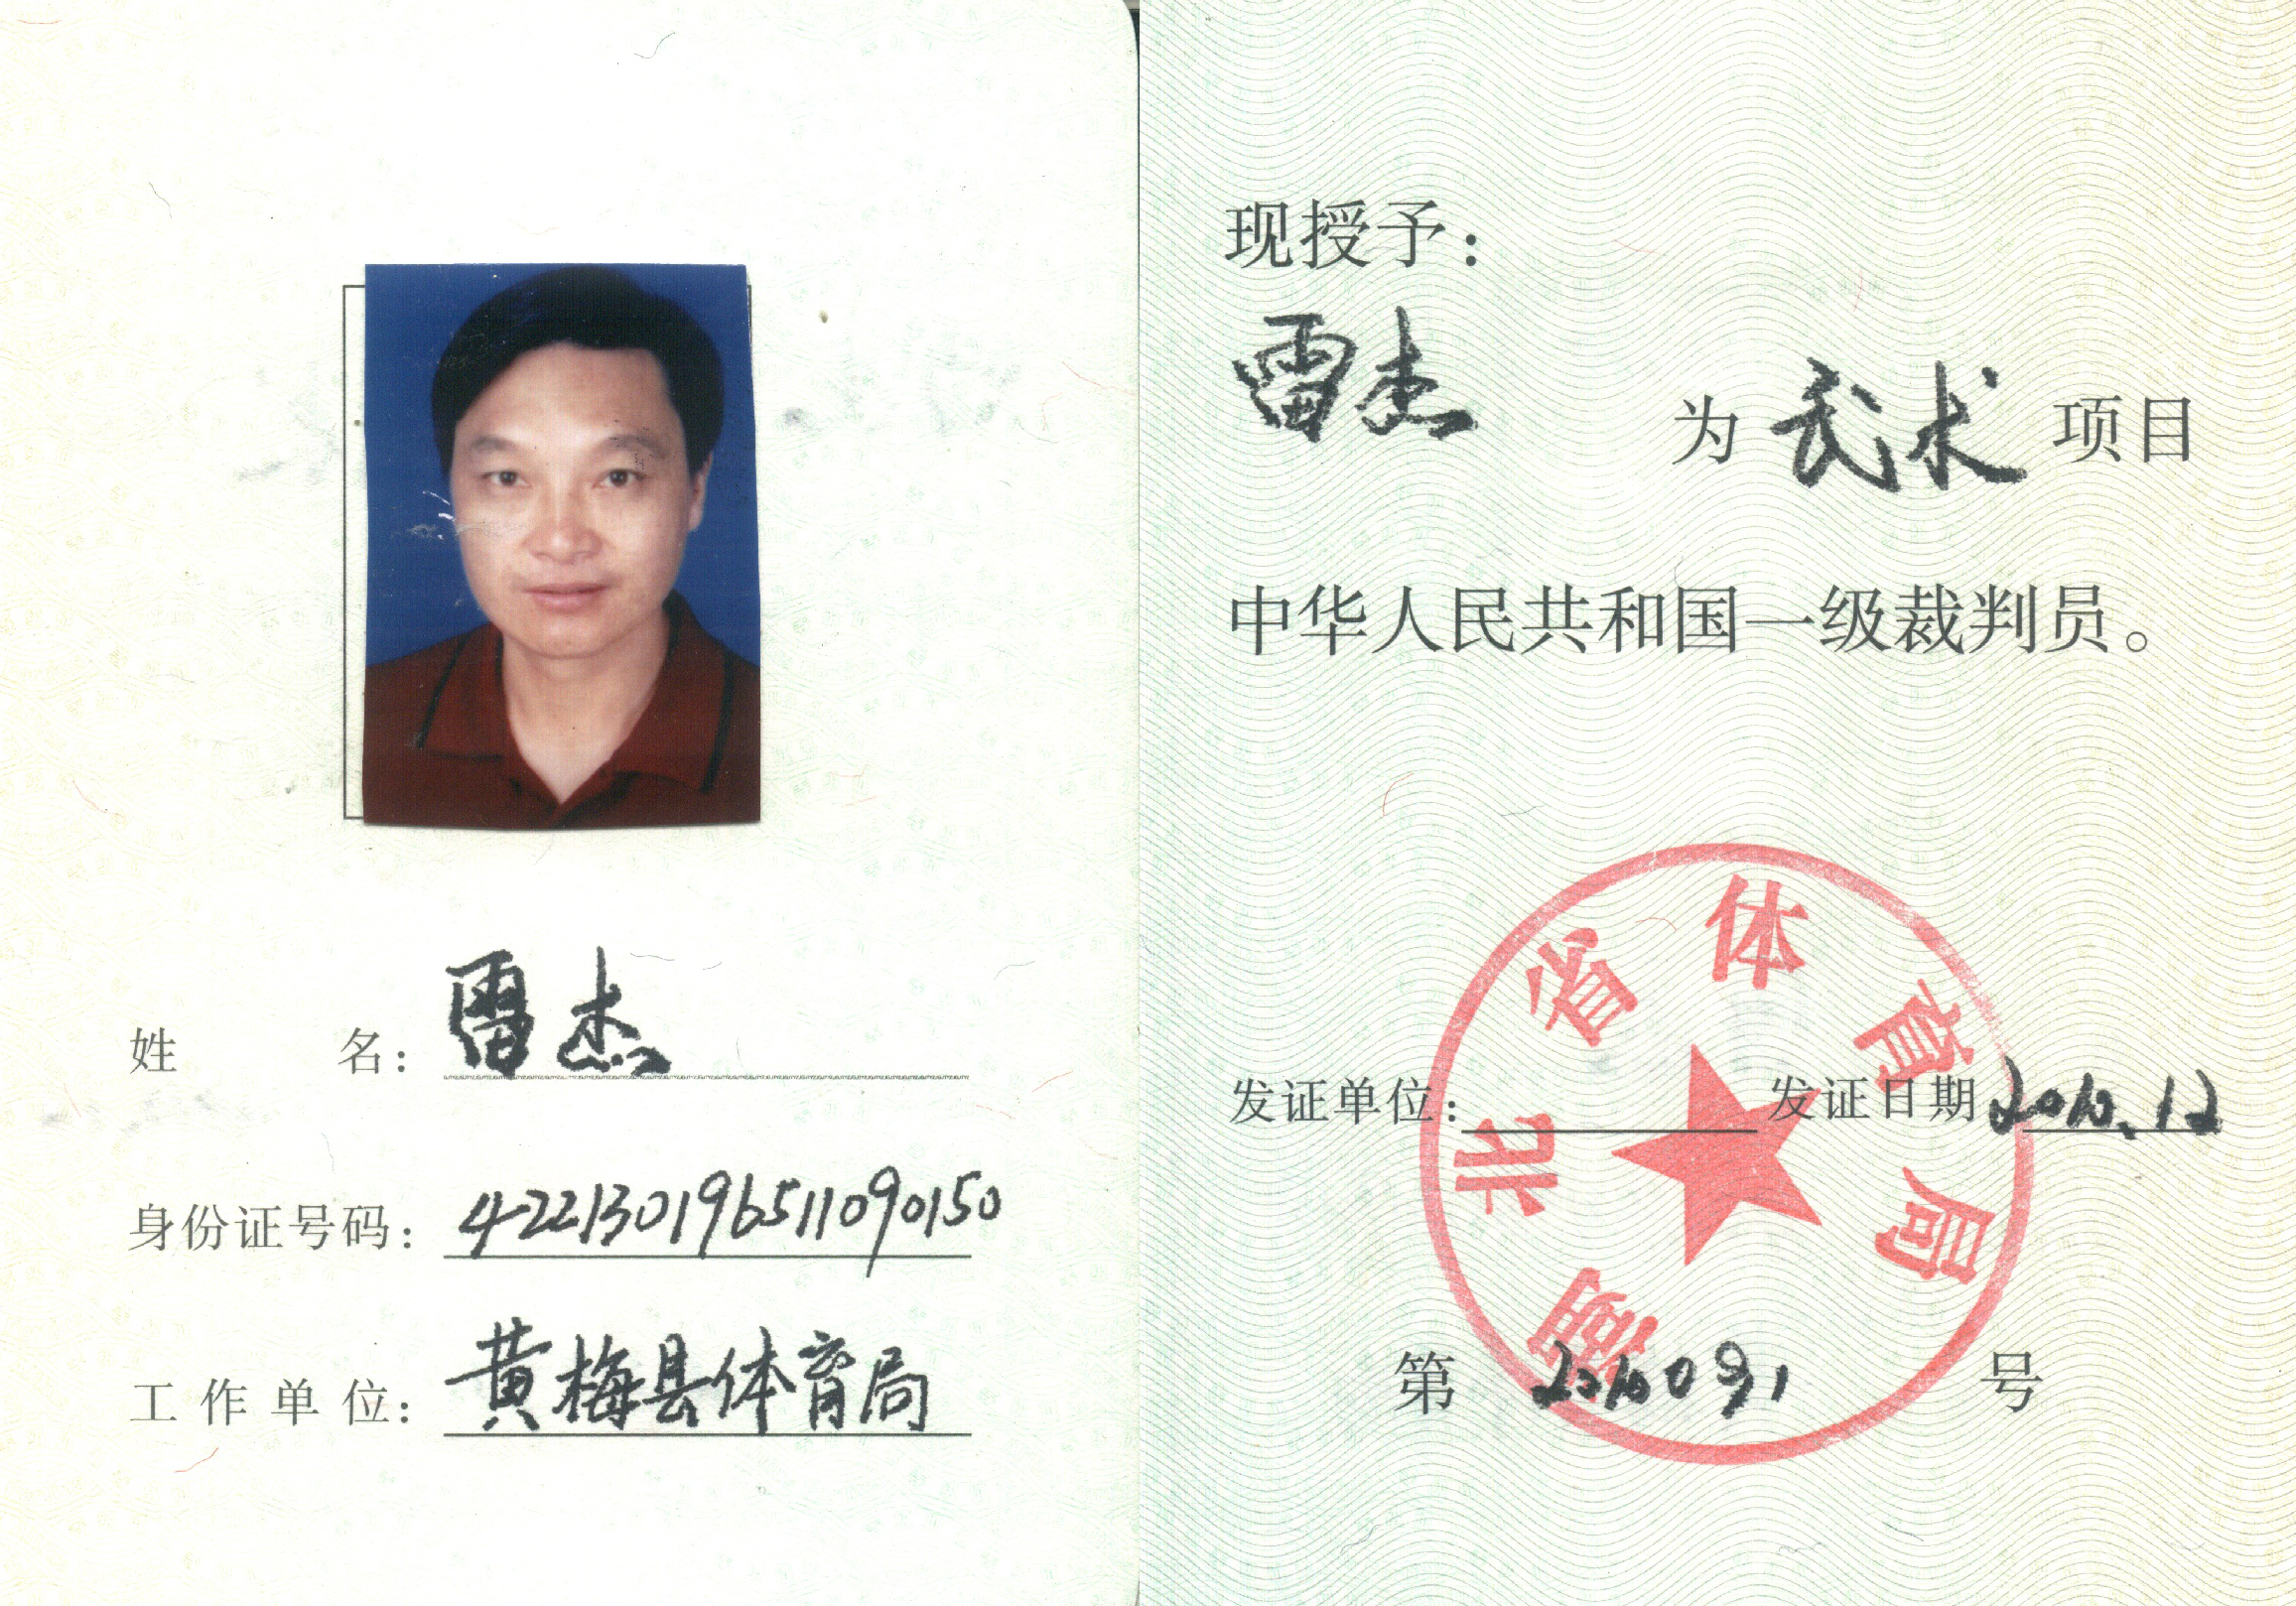 姓名：雷杰
身份证号码：422130196511090150
工作单位：黄梅县体育局
现授予：
雷杰 为 武术 项目
中华人民共和国一级裁判员。
湖北省体育局
发证单位： 发证日期 2010.12
第 2010091 号